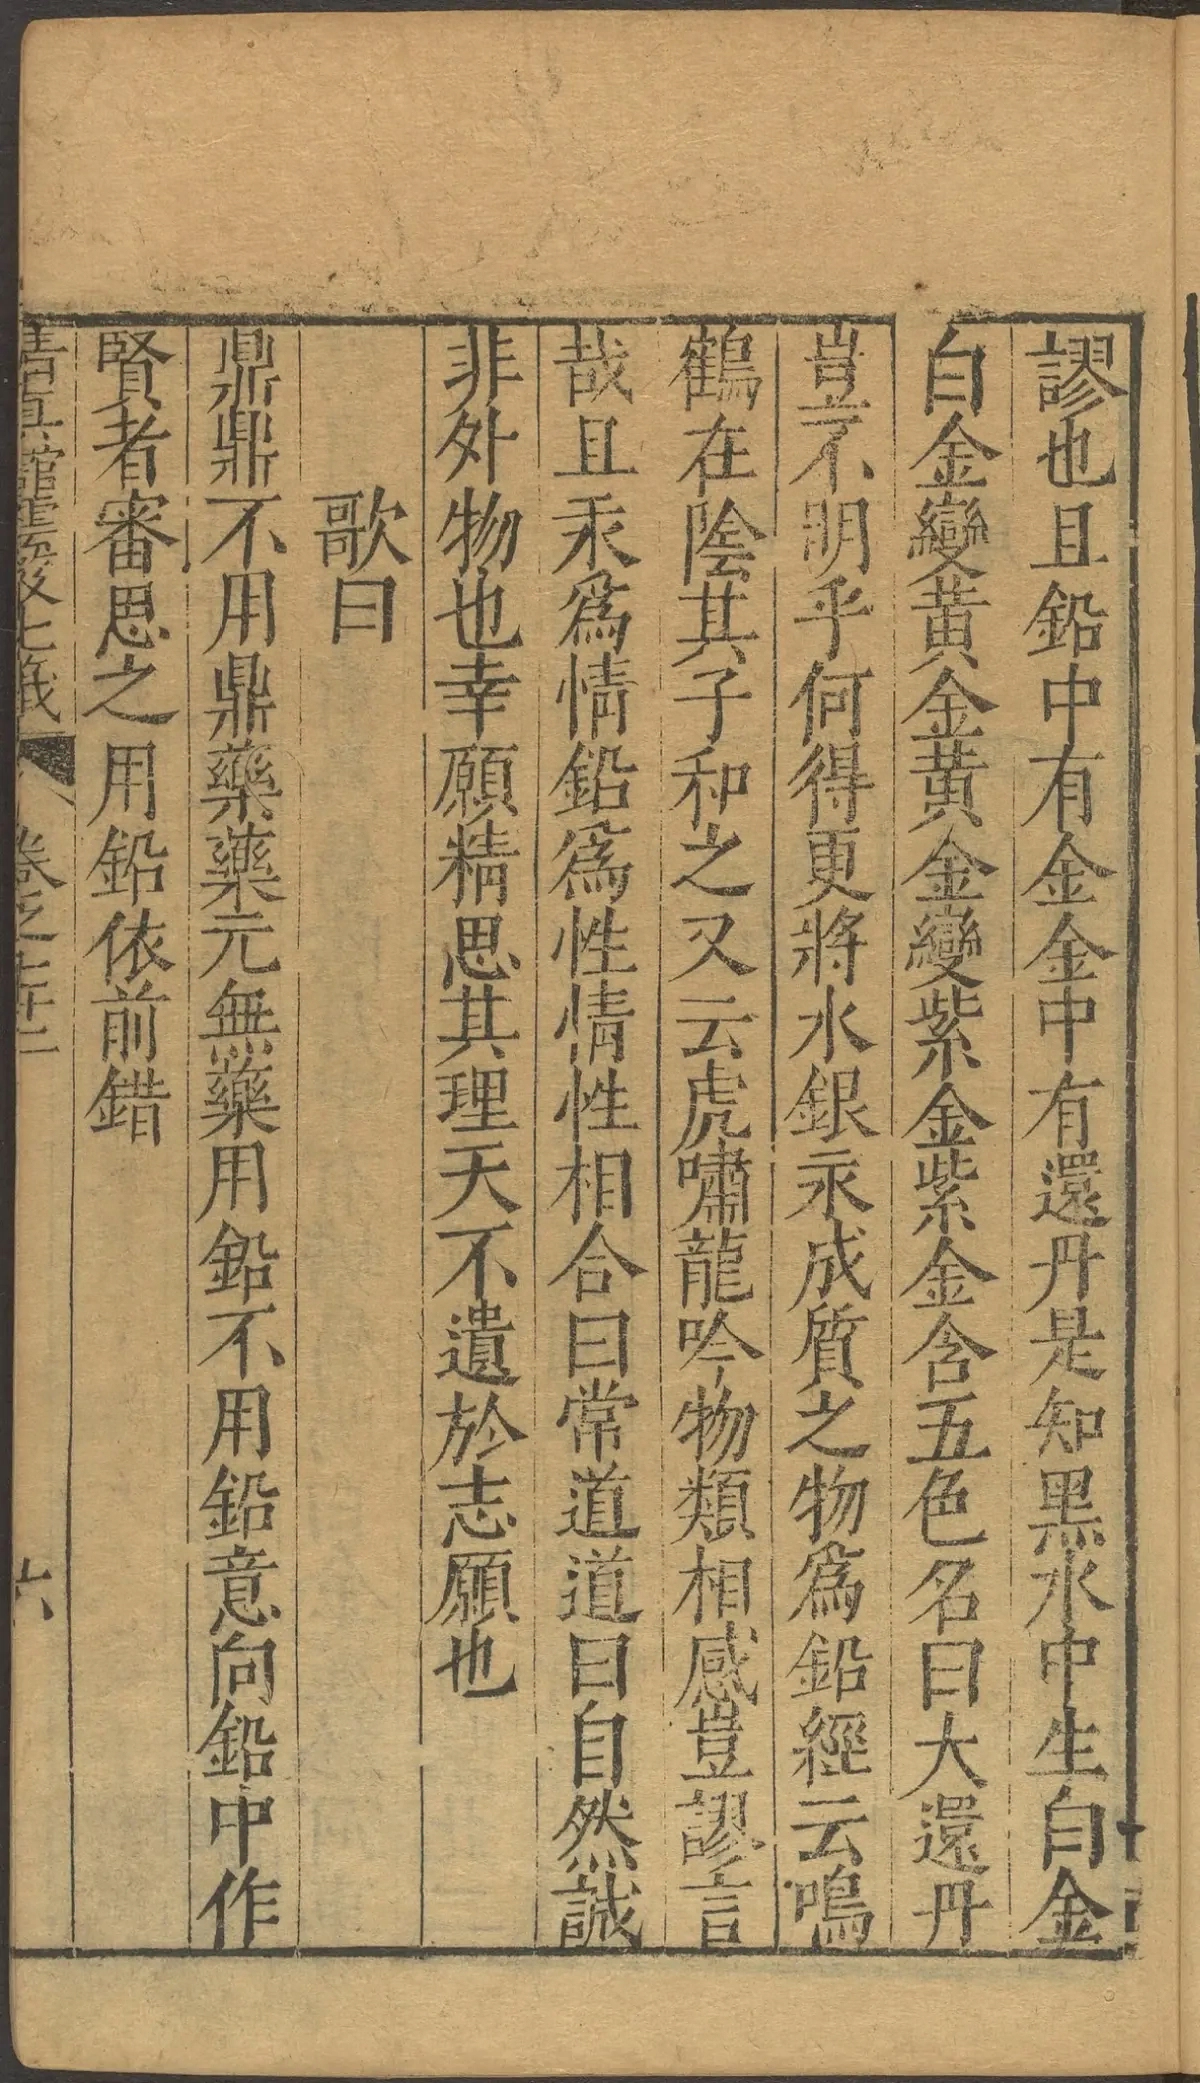 謬也且鉛中有金金中有還丹是知黑水中生白金
白金變黃金黃金變紫金紫金含五色名曰大還丹
豈不明乎何得更將水銀汞成質之物爲鉛經云鳴
鶴在陰其子和之又云虎嘯龍吟物類相感豈謬言
哉且汞爲情鉛爲性情性相合曰常道道曰自然誠
非外物也幸願精思其理天不遺於志願也
歌曰
鼎鼎不用鼎藥藥元無藥用鉛不用鉛意向鉛中作
賢者審思之用鉛依前錯
清眞館雲笈七籤 卷之七十二 六